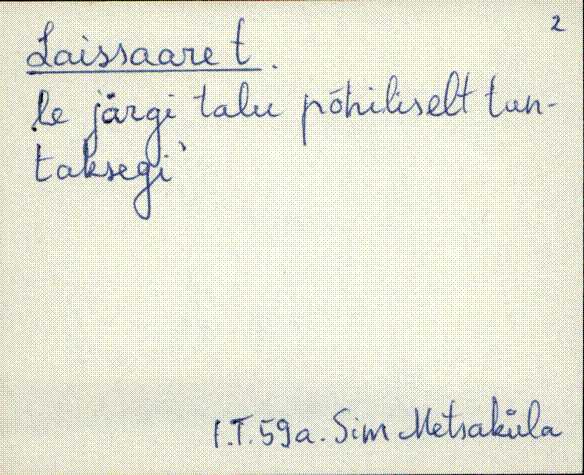 2
Laissaare t.
le järgi talu põhiliselt tun-
taksegi`
I.T. 59a. Sim Metsaküla